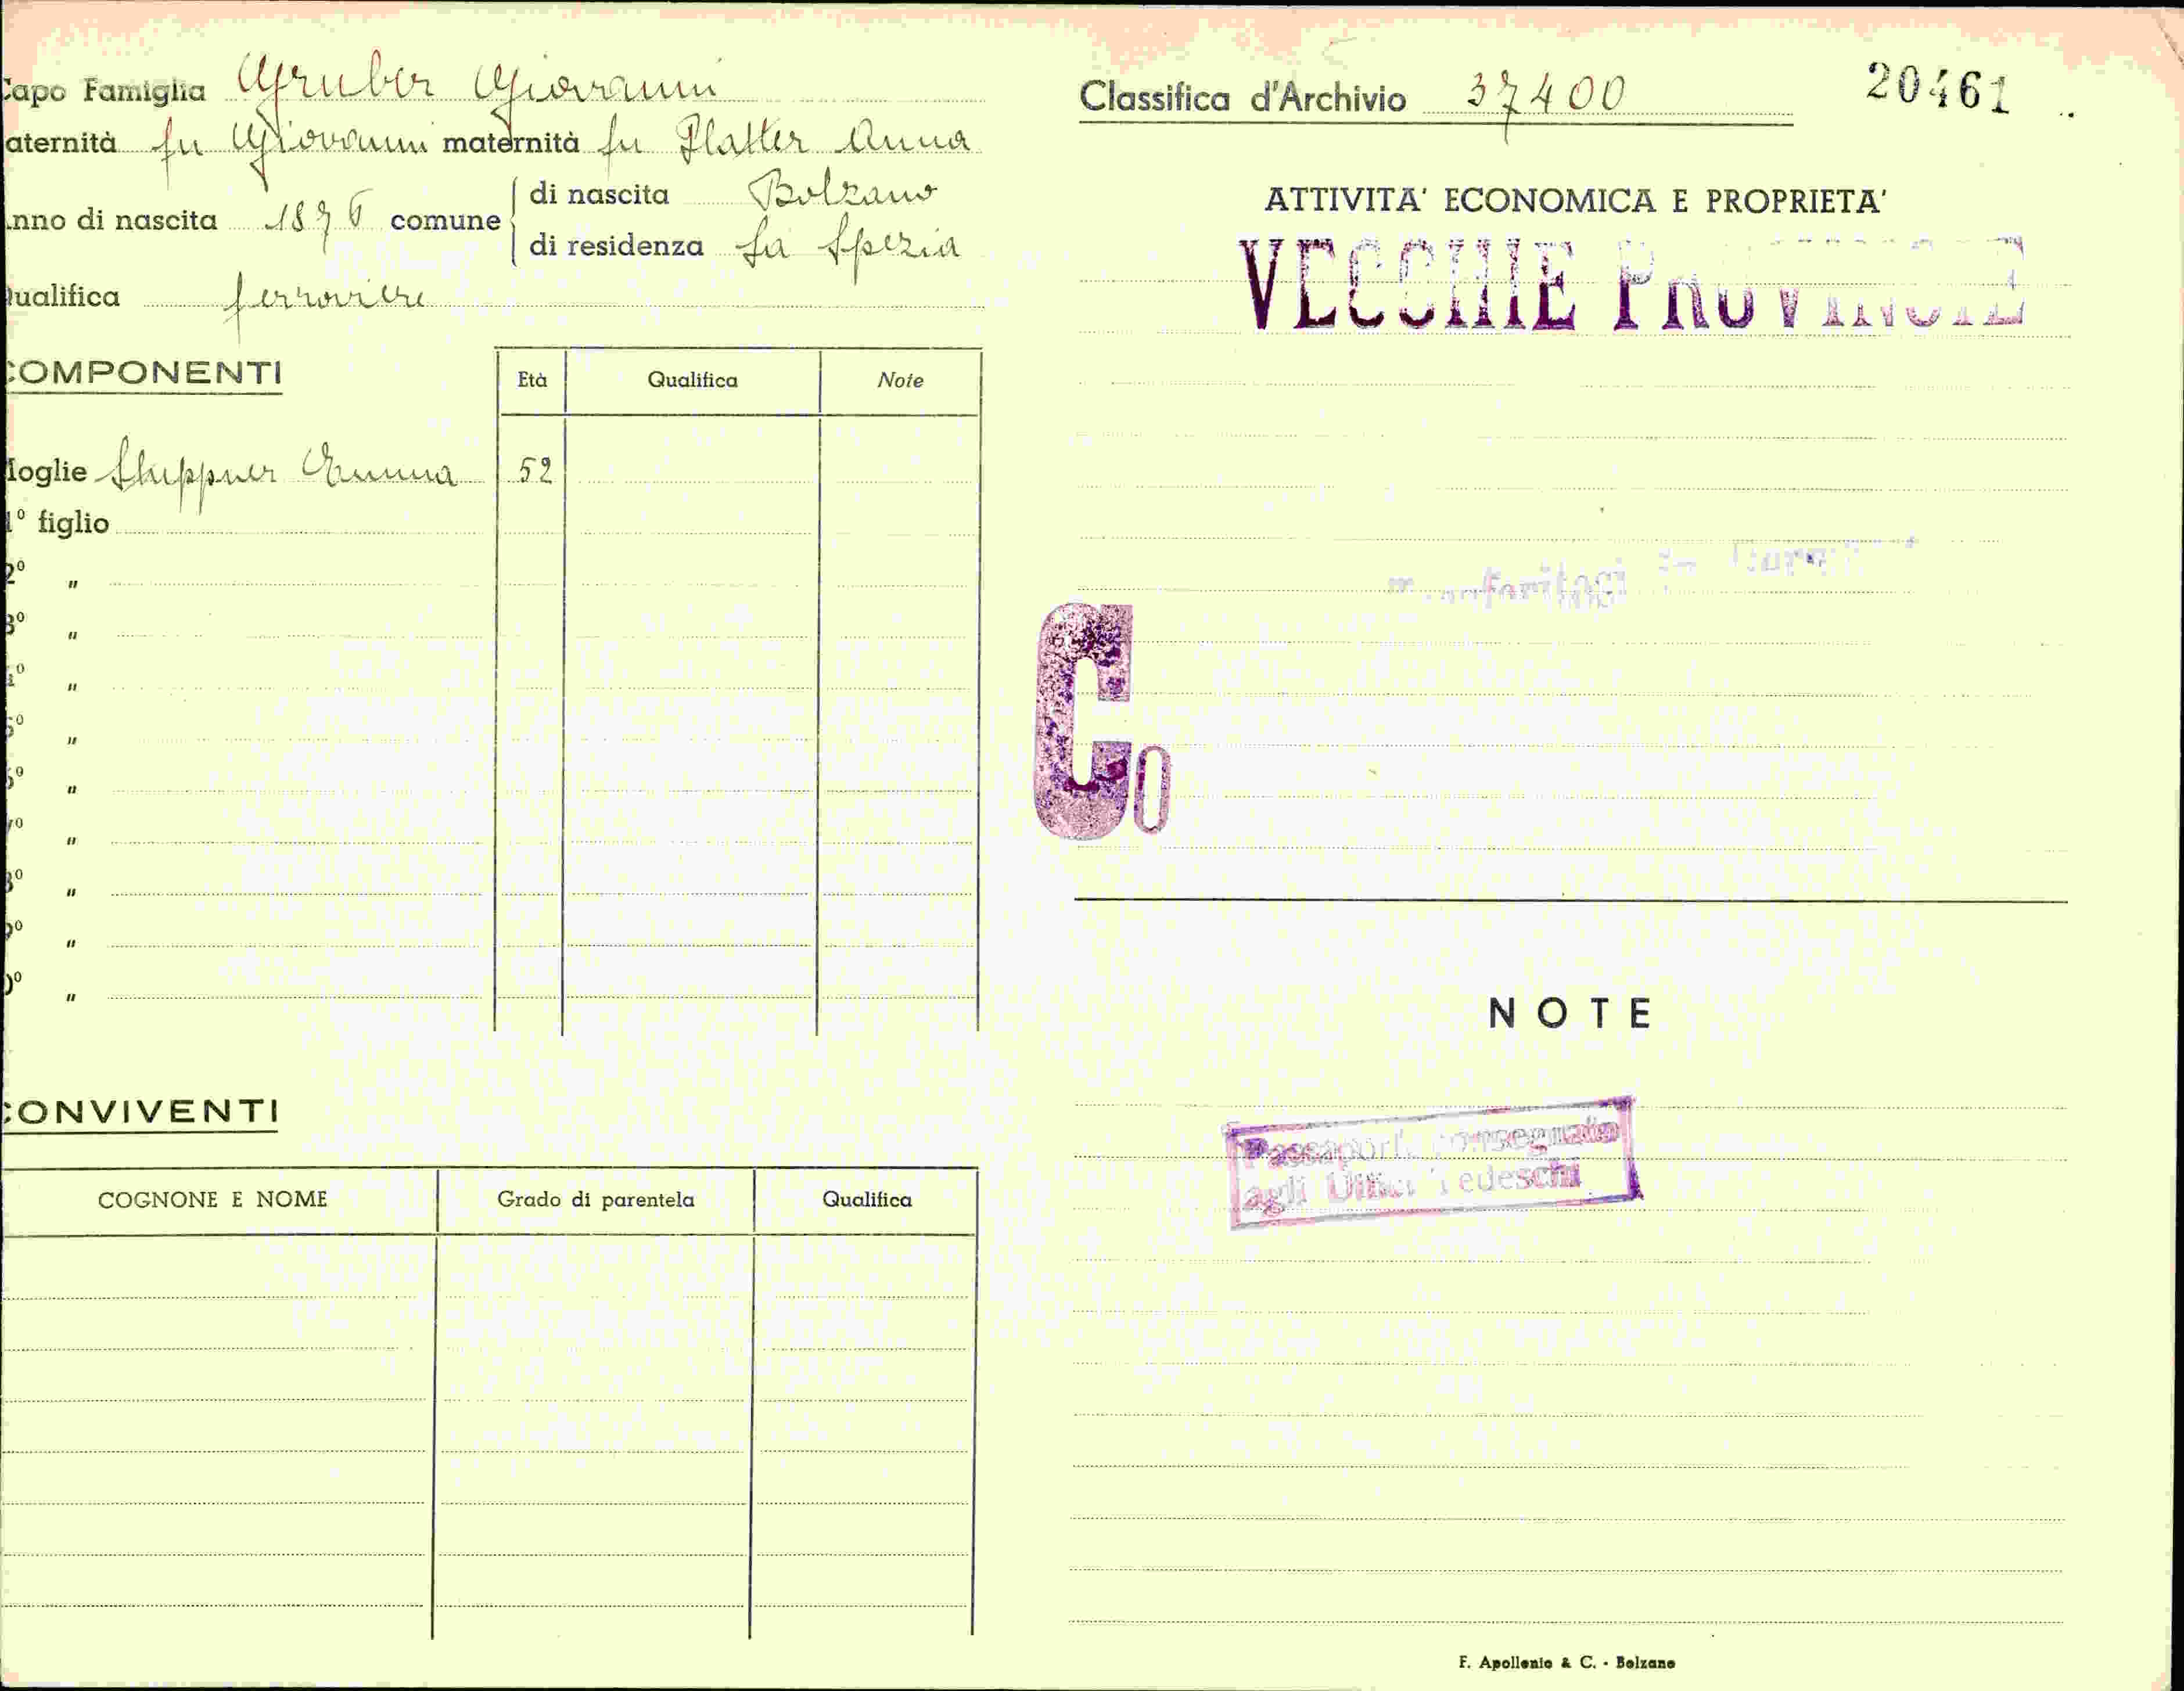 Capo Famiglia Gruber Giovanni
aternità fu Giovanni maternità fu Platter Anna
nno di nascita 1876 comune di nascita Bolzano
di residenza La Spezia
ualifica ferroviere
COMPONENTI
Età Qualifica Note
Moglie Emma 52
1º figlio
2º "
3º "
4º "
5º "
6º "
7º "
8º "
9º "
0º "
CONVIVENTI
COGNONE E NOME Grado di parentela Qualifica
Classifica d'Archivio 37400 20461
ATTIVITA' ECONOMICA E PROPRIETA'
VECCHIE PROVINCIE
Co
NOTE
Passaporto consegnato
agli Uffici Tedeschi
F. Apollonio & C. - Bolzano